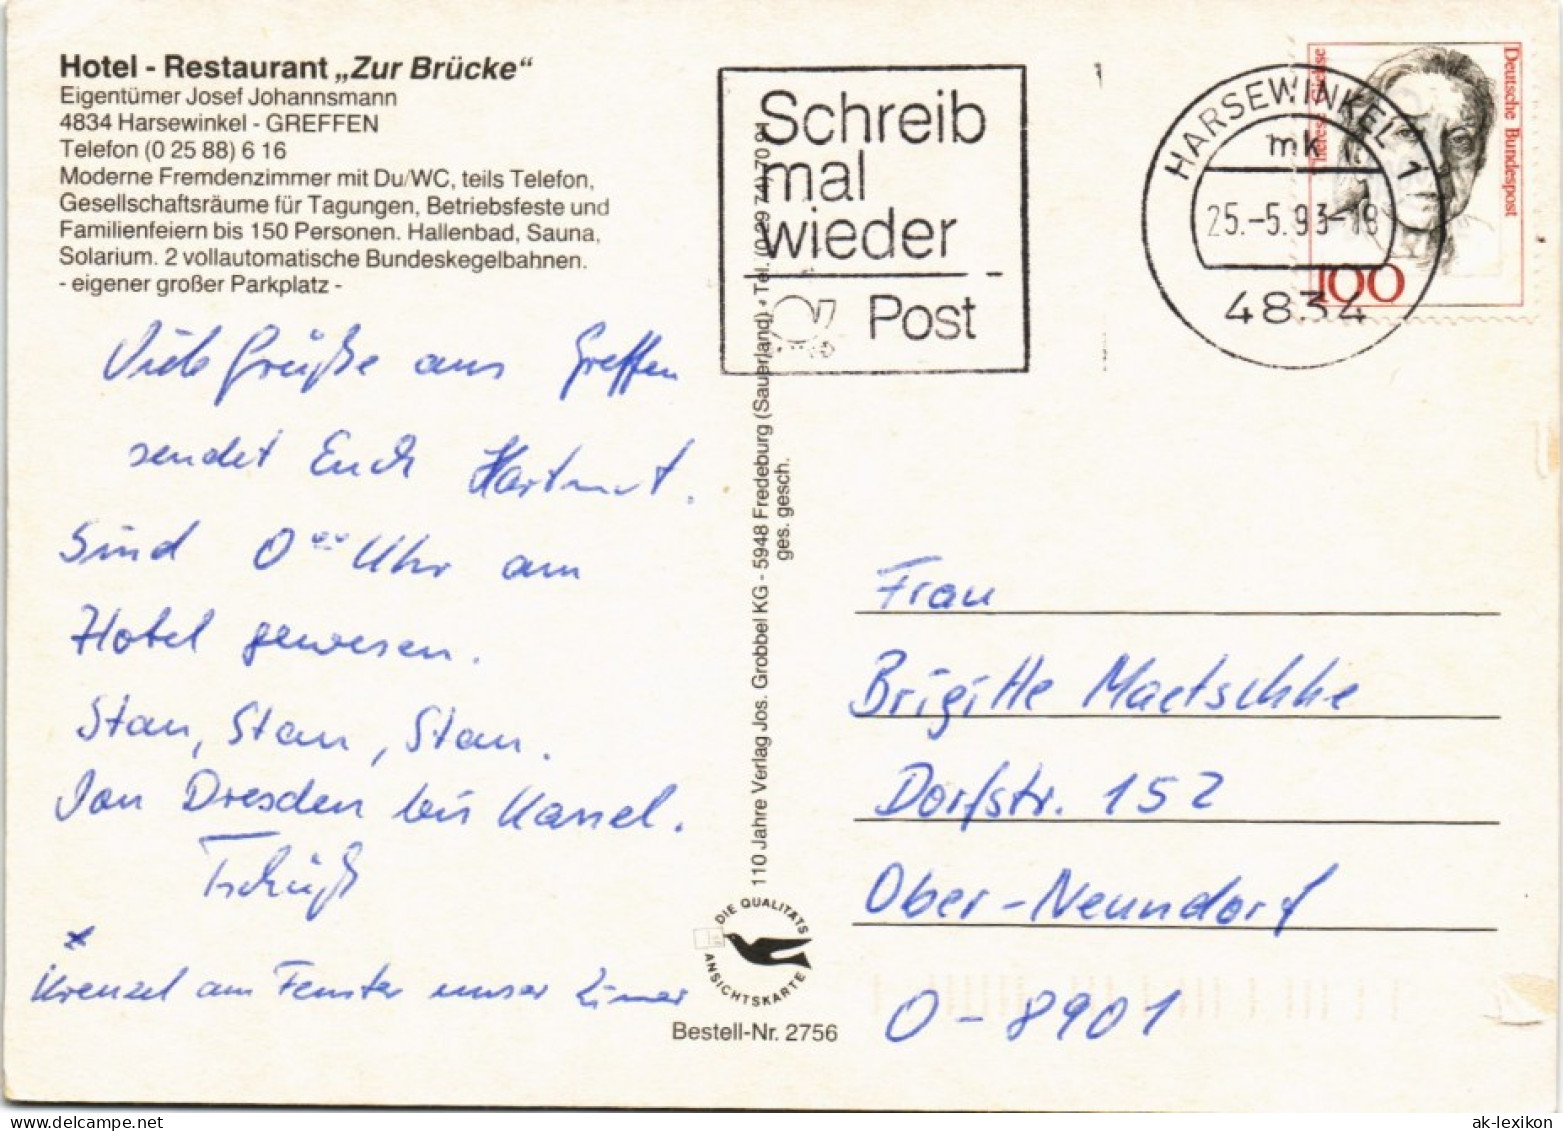 Hotel - Restaurant „Zur Brücke“
Eigentümer Josef Johannsmann
4834 Harsewinkel - GREFFEN
Telefon (0 25 88) 6 16
Moderne Fremdenzimmer mit Du/WC, teils Telefon,
Gesellschaftsräume für Tagungen, Betriebsfeste und
Familienfeiern bis 150 Personen. Hallenbad, Sauna,
Solarium. 2 vollautomatische Bundeskegelbahnen.
- eigener großer Parkplatz -
Viele Grüße aus Greffen
sendet Euch Hartmut.
Sind 0⁰⁰ Uhr am
Hotel gewesen.
Stau, Stau, Stau.
Von Dresden bis Kassel.
Tschüß
x
Kreuzel am Fenster unser Zimer
110 Jahre Verlag Jos. Grobbel KG - 5948 Fredeburg (Sauerland) • Tel. (0 29 74) 70 91
ges. gesch.
DIE QUALITÄTS
ANSICHTSKARTE
Bestell-Nr. 2756
Schreib
mal
wieder
Post
HARSEWINKEL 1
mk
25.-5.93-18
4834
Deutsche Bundespost
Therese Giehse
100
Frau
Brigitte Maetschke
Dorfstr. 152
Ober-Neundorf
O-8901
ak-lexikon